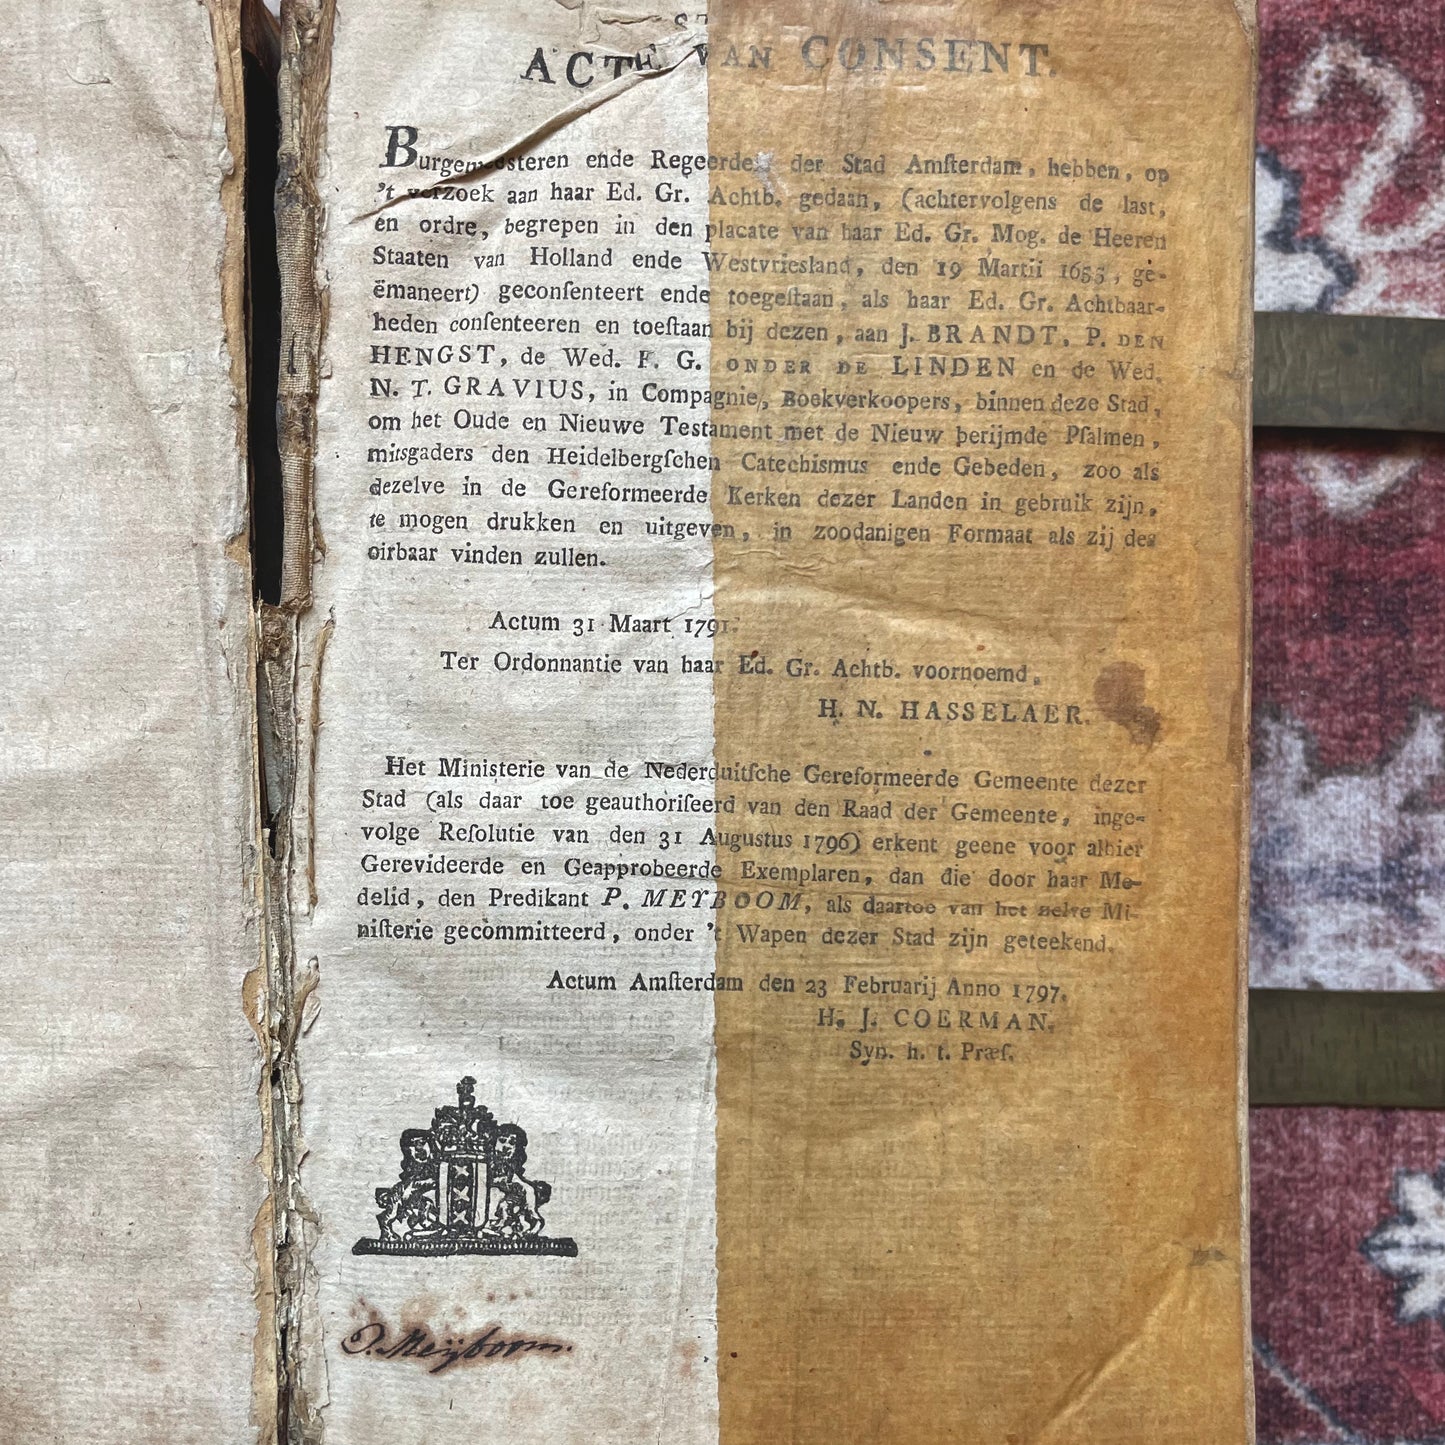 ACTE VAN CONSENT.
Burgemeesteren ende Regeerders der Stad Amſterdam, hebben, op
't verzoek aan haar Ed. Gr. Achtb. gedaan, (achtervolgens de laſt,
en ordre, begrepen in den placate van haar Ed. Gr. Mog. de Heeren
Staaten van Holland ende Westvriesland, den 19 Martii 1655, ge-
ëmaneert) geconſenteert ende toegeſtaan, als haar Ed. Gr. Achtbaar-
heden conſenteeren en toeſtaan bij dezen, aan J. BRANDT, P. DEN
HENGST, de Wed. F. G. ONDER DE LINDEN en de Wed.
N. T. GRAVIUS, in Compagnie, Boekverkoopers, binnen deze Stad,
om het Oude en Nieuwe Testament met de Nieuw berijmde Pſalmen,
mitsgaders den Heidelbergſchen Catechismus ende Gebeden, zoo als
dezelve in de Gereformeerde Kerken dezer Landen in gebruik zijn,
te mogen drukken en uitgeven, in zoodanigen Formaat als zij des
oirbaar vinden zullen.
Actum 31 Maart 1791.
Ter Ordonnantie van haar Ed. Gr. Achtb. voornoemd,
H. N. HASSELAER.
Het Ministerie van de Nederduitſche Gereformeerde Gemeente dezer
Stad (als daar toe geauthoriſeerd van den Raad der Gemeente, inge-
volge Reſolutie van den 31 Augustus 1796) erkent geene voor alhier
Gerevideerde en Geapprobeerde Exemplaren, dan die door haar Me-
delid, den Predikant P. MEYBOOM, als daartoe van het zelve Mi-
niſterie gecommitteerd, onder 't Wapen dezer Stad zijn geteekend.
Actum Amſterdam den 23 Februarij Anno 1797.
H. J. COERMAN.
Syn. h. t. Præſ.
P. Meijboom.